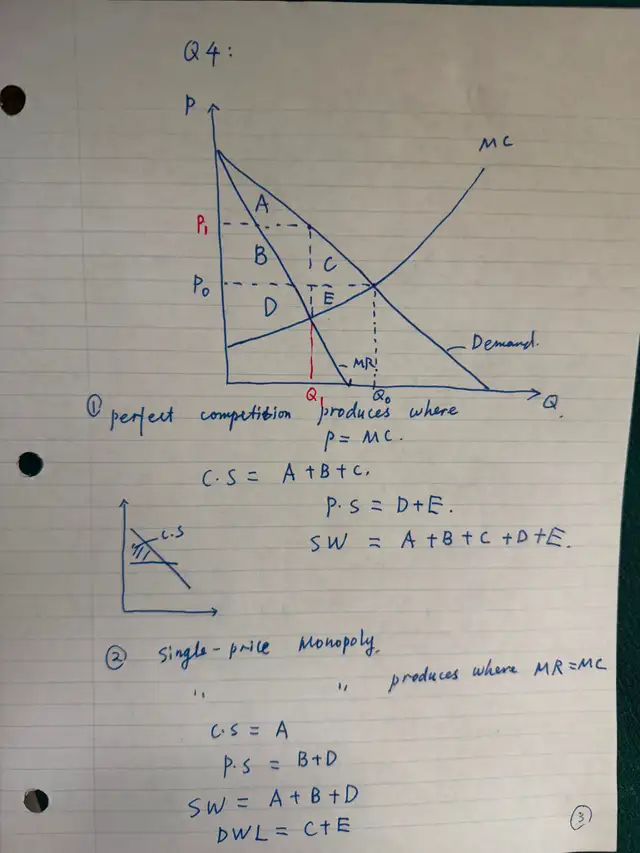 Q4:
P
MC
A
P1
B
C
P0
D
E
Demand.
MR
Q1
Q0
Q.
① perfect competition produces where
P = MC.
C.S = A+B+C.
P.S = D+E.
C.S
SW = A+B+C+D+E.
② Single-price Monopoly.
" " produces where MR=MC
C.S = A
P.S = B+D
SW = A+B+D
DWL = C+E
③